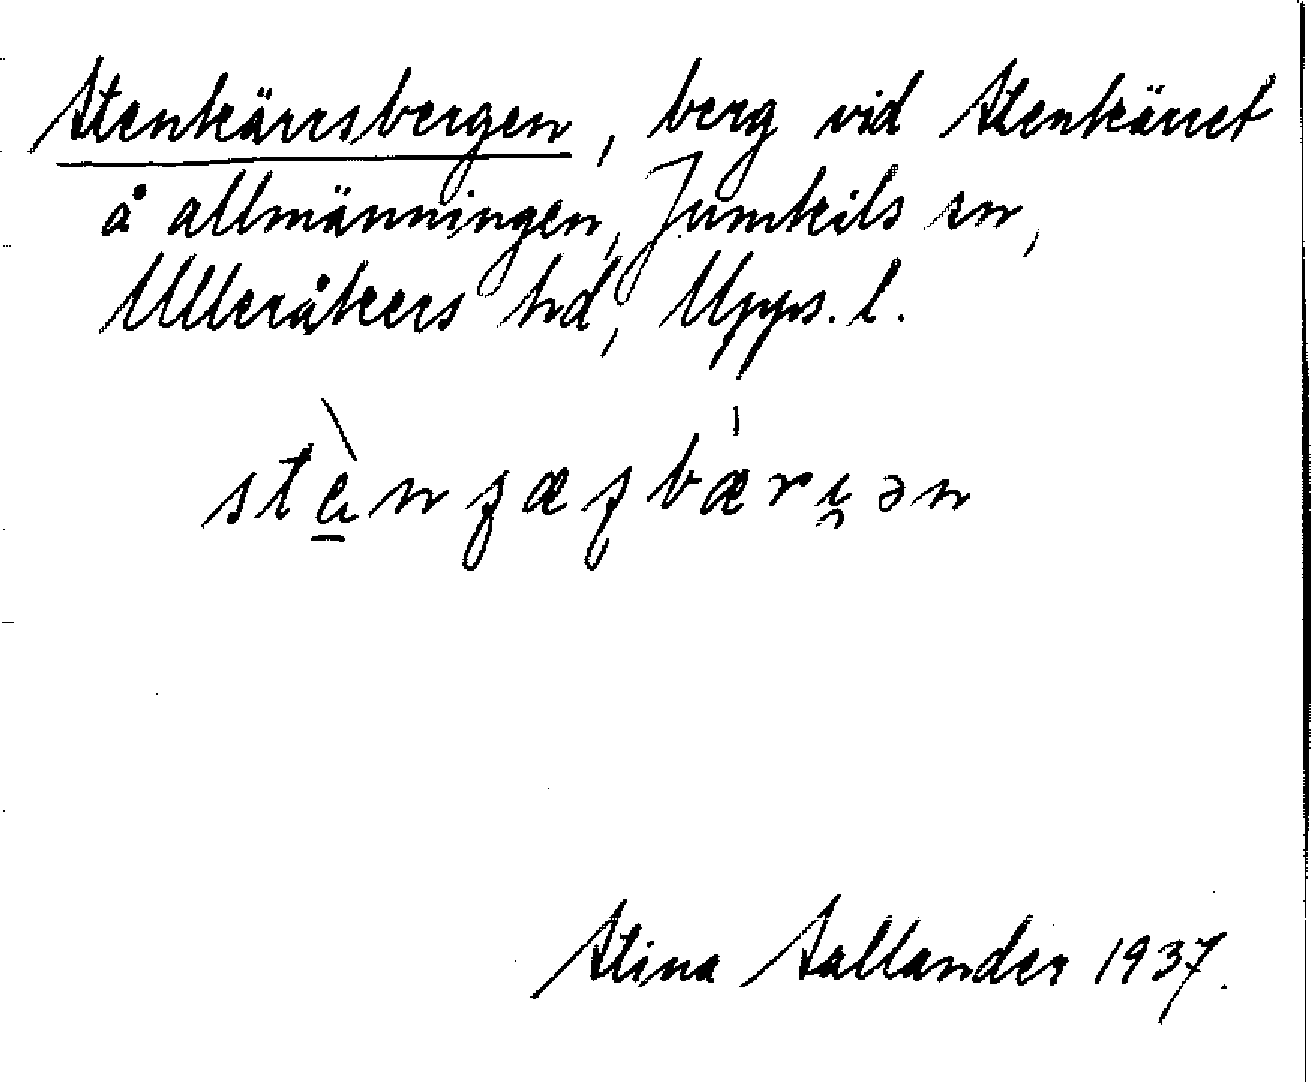 Stenkärrsbergen, berg vid Stenkärret
å allmänningen, Jumkils sn,
Ulleråkers hd, Upps. l.
Stina Sallander 1937.